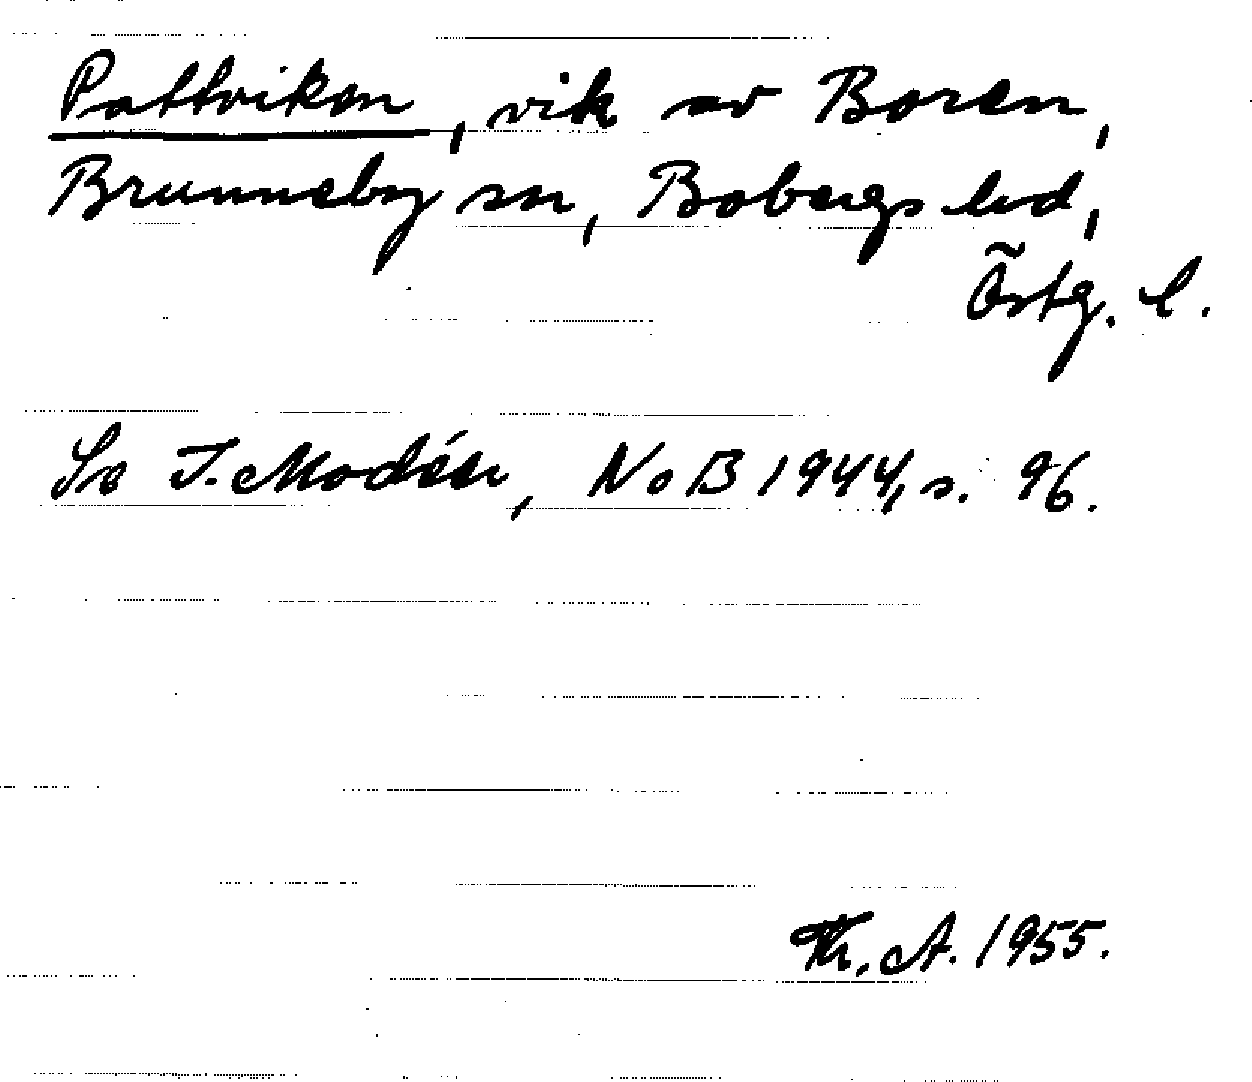 Pattviken, vik av Boren,
Brunneby sn, Bobergs hd,
Östg. l.
Se I. Modéer, NoB 1944, s. 96.
Th. A. 1955.